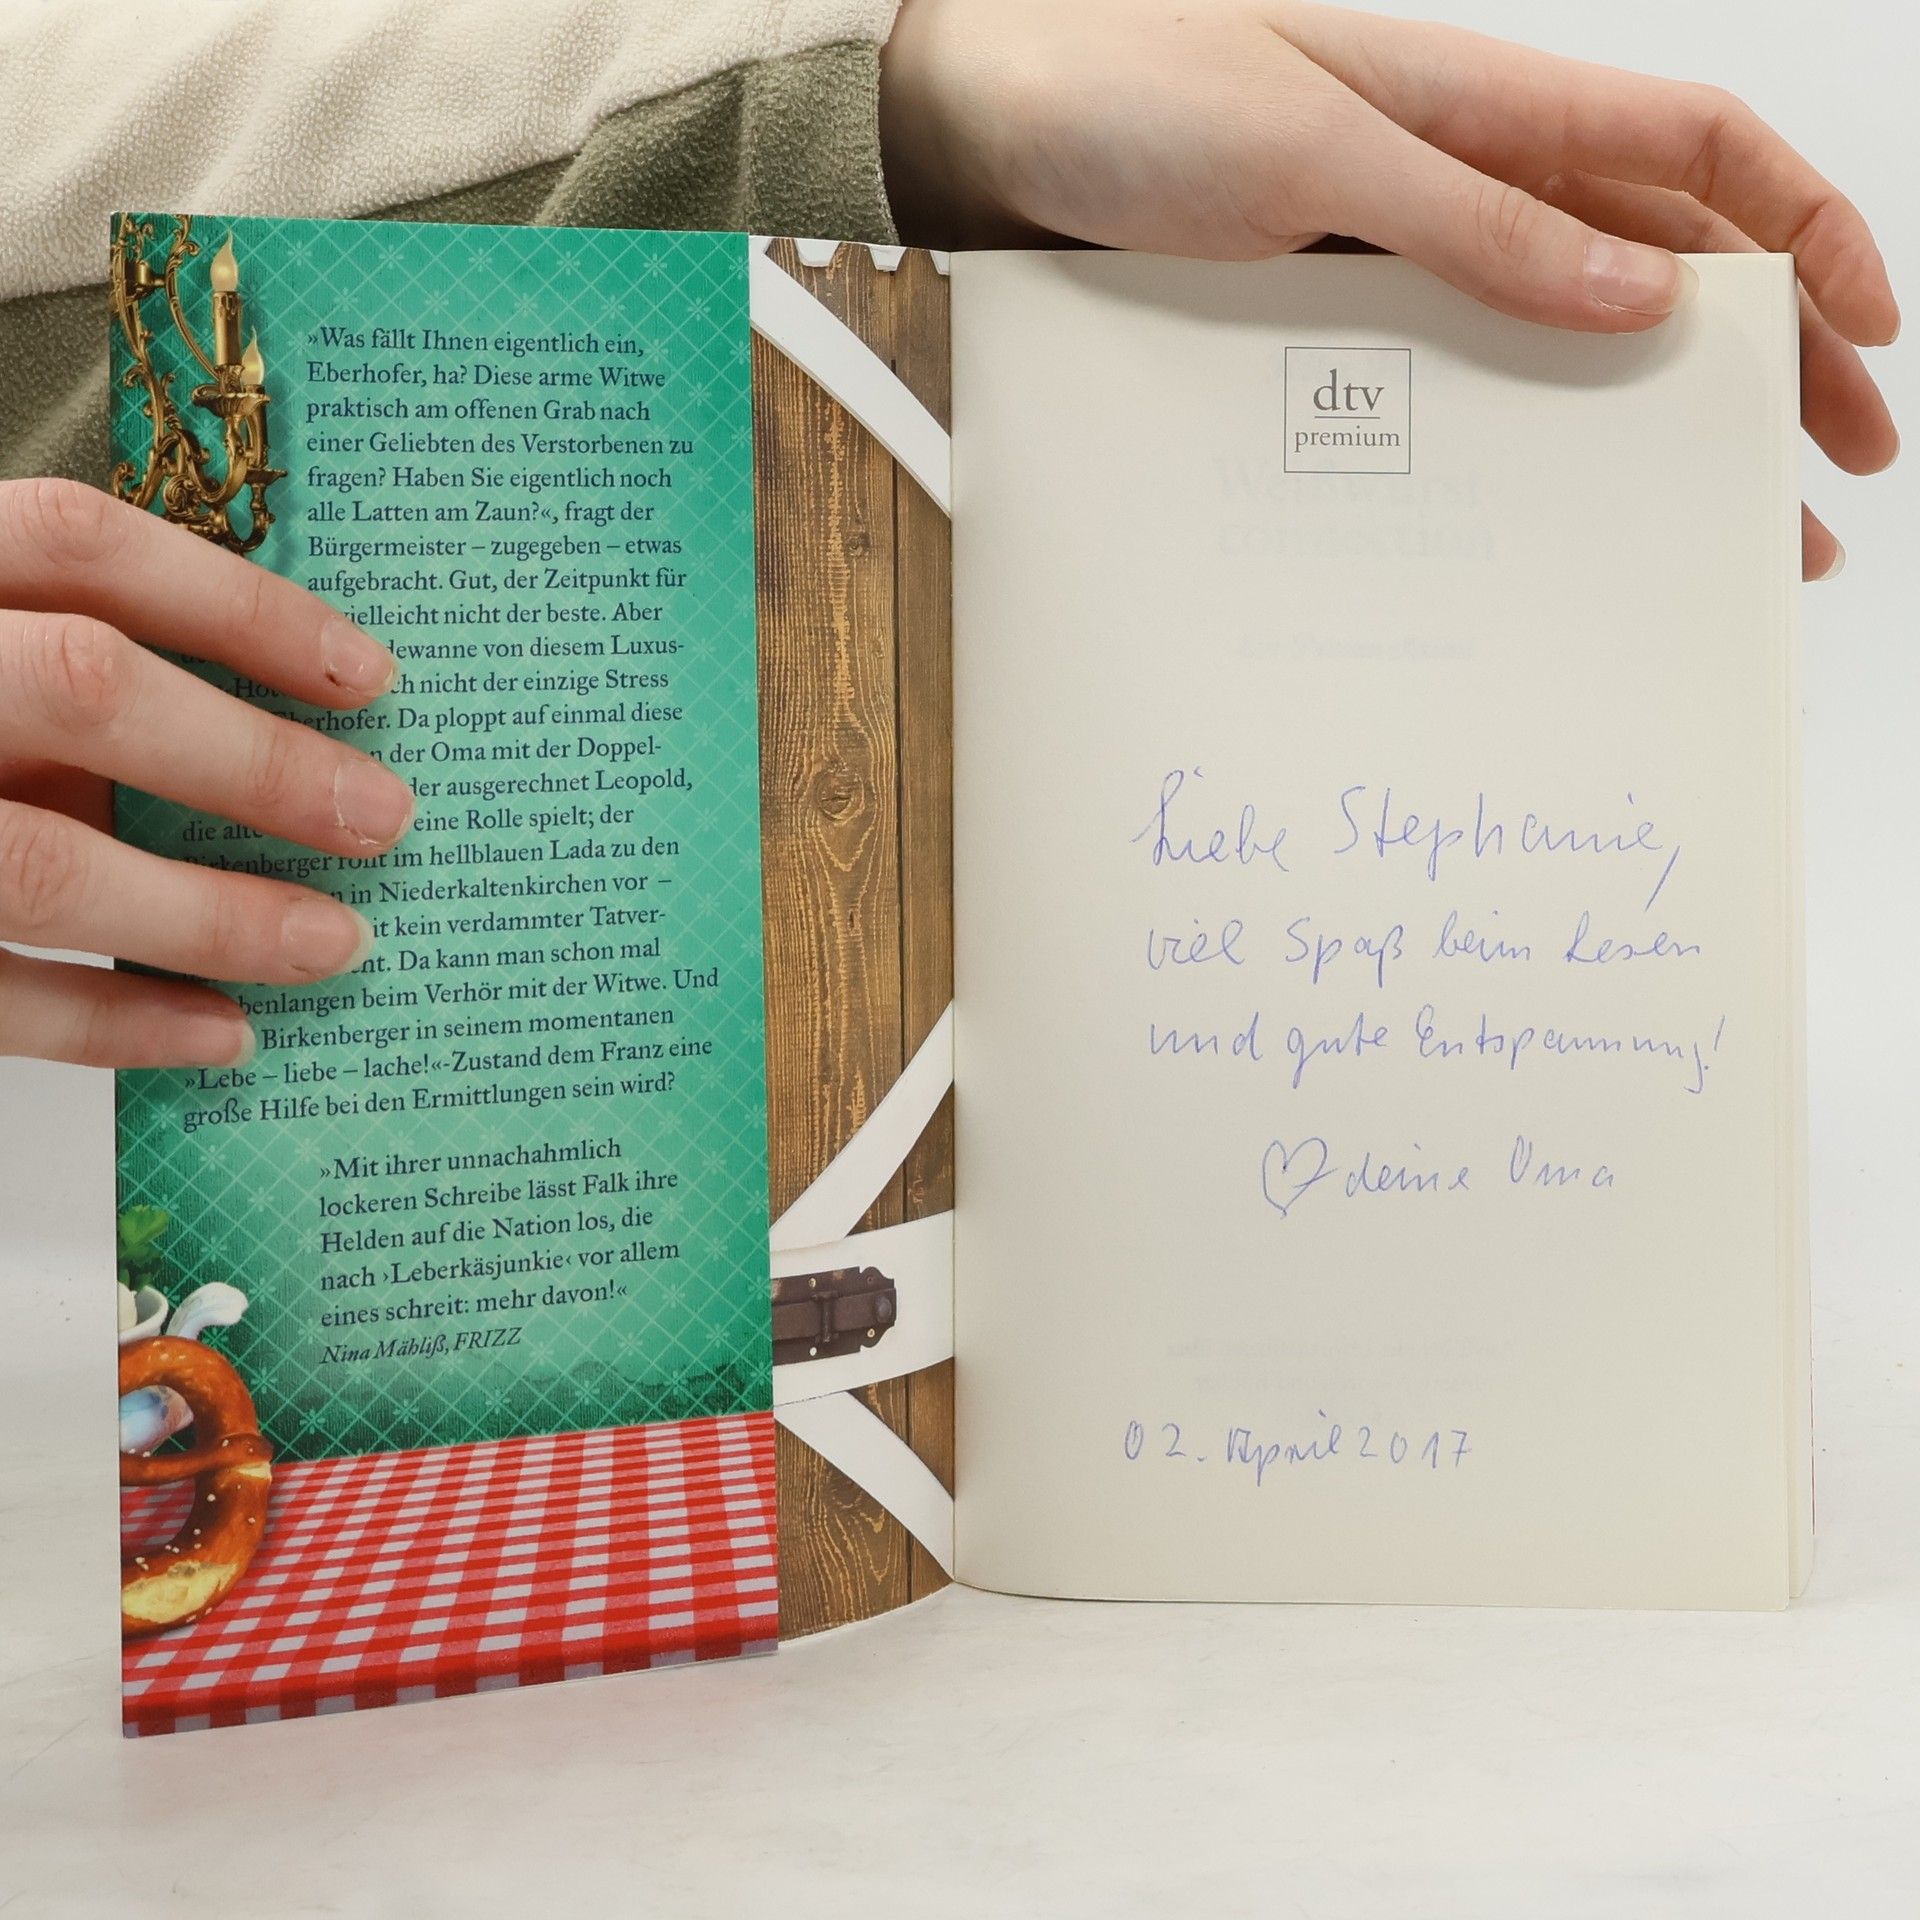 »Was fällt Ihnen eigentlich ein,
Eberhofer, ha? Diese arme Witwe
praktisch am offenen Grab nach
einer Geliebten des Verstorbenen zu
fragen? Haben Sie eigentlich noch
alle Latten am Zaun?«, fragt der
Bürgermeister – zugegeben – etwas
aufgebracht. Gut, der Zeitpunkt für
nicht der beste. Aber
von diesem Luxus-
nicht der einzige Stress
Da ploppt auf einmal diese
der Oma mit der Doppel-
ausgerechnet Leopold,
die eine Rolle spielt; der
Birkenberger im hellblauen Lada zu den
in Niederkaltenkirchen vor –
kein verdammter Tatver-
Da kann man schon mal
beim Verhör mit der Witwe. Und
Birkenberger in seinem momentanen
»Lebe – liebe – lache!«-Zustand dem Franz eine
große Hilfe bei den Ermittlungen sein wird?
»Mit ihrer unnachahmlich
lockeren Schreibe lässt Falk ihre
Helden auf die Nation los, die
nach ›Leberkäsjunkie‹ vor allem
eines schreit: mehr davon!«
Nina Mähliß, FRIZZ
dtv
premium
Liebe Stephanie,
viel Spaß beim Lesen
und gute Entspannung!
deine Oma
02. April 2017